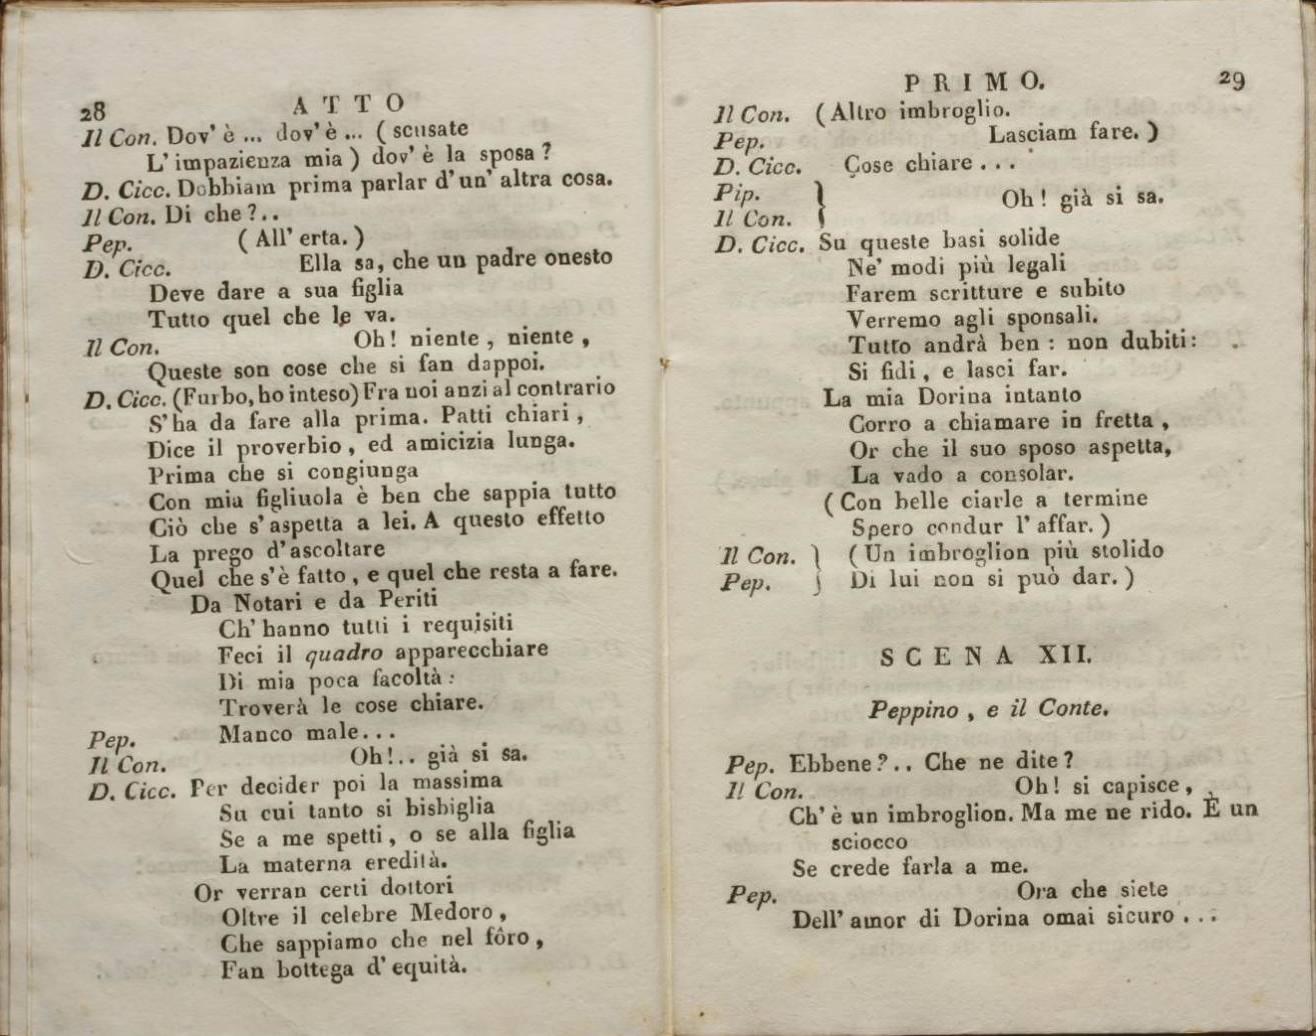 28 ATTO
Il Con. Dov' è ... dov' è ... ( scusate
L' impazienza mia ) dov' è la sposa ?
D. Cicc. Dobbiam prima parlar d' un' altra cosa.
Il Con. Di che ?..
Pep. ( All' erta. )
D. Cicc. Ella sa, che un padre onesto
Deve dare a sua figlia
Tutto quel che le va.
Il Con. Oh ! niente , niente ,
Queste son cose che si fan dappoi.
D. Cicc. (Furbo, ho inteso) Fra noi anzi al contrario
S' ha da fare alla prima. Patti chiari ,
Dice il proverbio , ed amicizia lunga.
Prima che si congiunga
Con mia figliuola è ben che sappia tutto
Ciò che s' aspetta a lei. A questo effetto
La prego d' ascoltare
Quel che s' è fatto , e quel che resta a fare.
Da Notari e da Periti
Ch' hanno tutti i requisiti
Feci il quadro apparecchiare
Di mia poca facoltà :
Troverà le cose chiare.
Pep. Manco male...
Il Con. Oh !.. già si sa.
D. Cicc. Per decider poi la massima
Su cui tanto si bisbiglia
Se a me spetti , o se alla figlia
La materna eredità.
Or verran certi dottori
Oltre il celebre Medoro ,
Che sappiamo che nel fôro ,
Fan bottega d' equità.
PRIMO. 29
Il Con. ( Altro imbroglio.
Pep. Lasciam fare. )
D. Cicc. Cose chiare ...
Pip. }
Il Con. } Oh ! già si sa.
D. Cicc. Su queste basi solide
Ne' modi più legali
Farem scritture e subito
Verremo agli sponsali.
Tutto andrà ben : non dubiti :
Si fidi , e lasci far.
La mia Dorina intanto
Corro a chiamare in fretta ,
Or che il suo sposo aspetta,
La vado a consolar.
( Con belle ciarle a termine
Spero condur l' affar. )
Il Con. } ( Un imbroglion più stolido
Pep. } Di lui non si può dar. )
SCENA XII.
Peppino , e il Conte.
Pep. Ebbene ?.. Che ne dite ?
Il Con. Oh ! si capisce ,
Ch' è un imbroglion. Ma me ne rido. È un
sciocco
Se crede farla a me.
Pep. Ora che siete
Dell' amor di Dorina omai sicuro ...